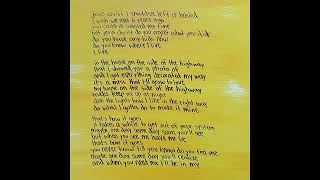 jesus christ i should've left it behind
i wish we met 5 years ago
you could've wasted my time
but jesus christ do you regret what you did
do you have any kids now
do you know where i live
i live
in the house on the side of the highway
that i showed you a photo of
and i got everything decorated my way
it's a mess that i'll grow to love
my house on the side of the highway
trucks keep me up at night
when the lights how i like in the right way
do what i gotta do to make it mine
that's how it goes
it takes a while to get out of your system
maybe one day some day soon you'll see
but when you see me have me lie
that's how it goes
you never know til you know do you feel me
maybe one day some day you'll realize
and when you need me i'll be in my